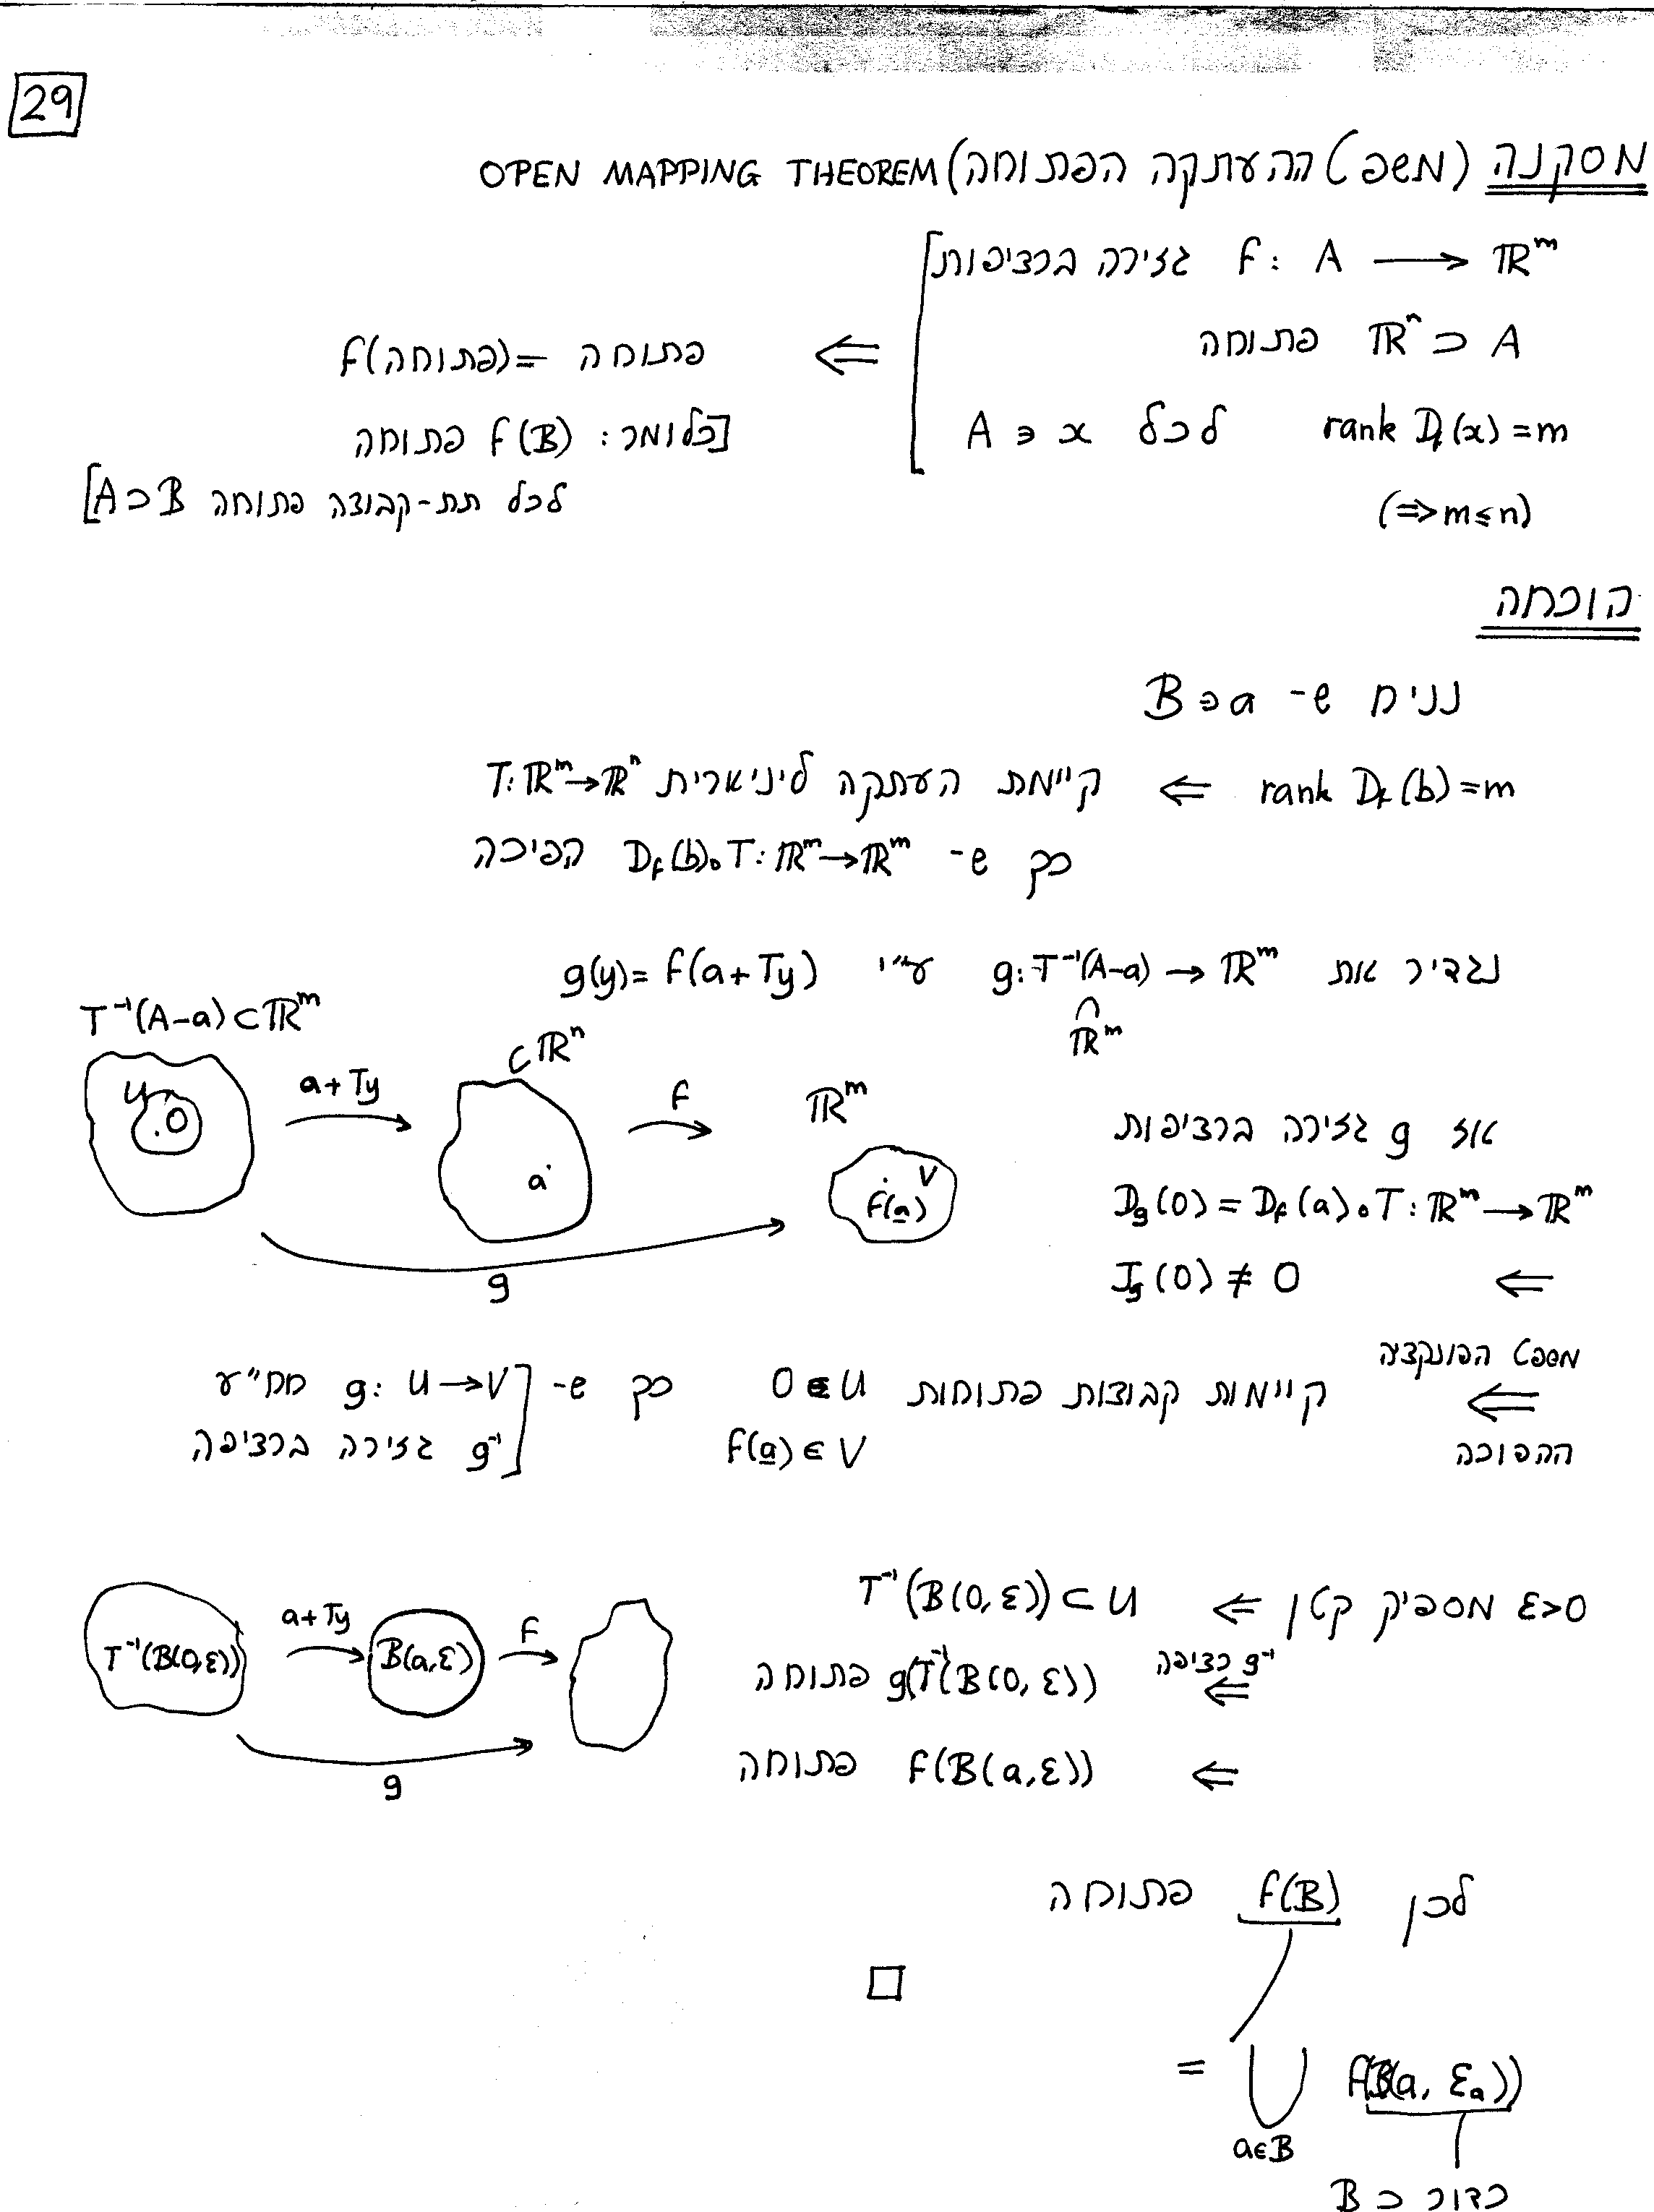 29
מסקנה (משפט ההעתקה הפתוחה) OPEN MAPPING THEOREM
f: A ⟶ ℝᵐ גזירה ברציפות
A ⊂ ℝⁿ פתוחה
rank D_f(x) = m לכל x ∈ A
(⇒ m ≤ n)
⇐ פתוחה = f(פתוחה)
[כלומר: f(B) פתוחה
לכל תת-קבוצה פתוחה A⊃B]
הוכחה
נניח ש- B∋a
rank D_f(b) = m ⇐ קיימת העתקה ליניארית T: ℝᵐ→ℝⁿ
כך ש- D_f(b)∘T: ℝᵐ→ℝᵐ הפיכה
נגדיר את g: T⁻¹(A-a) → ℝᵐ ע"י g(y) = f(a+Ty)
∩
ℝᵐ
T⁻¹(A-a) ⊂ ℝᵐ
⊂ ℝⁿ
a+Ty
f
ℝᵐ
U
0
a
V
f(a)
g
אז g גזירה ברציפות
D_g(0) = D_f(a)∘T: ℝᵐ⟶ℝᵐ
⇐ J_g(0) ≠ 0
משפט הפונקציה
ההפוכה
⇐ קיימות קבוצות פתוחות 0∈U כך ש- g: U→V חח"ע
f(a) ∈ V g⁻¹ גזירה ברציפה
ε>0 מספיק קטן ⇐ T⁻¹(B(0,ε)) ⊂ U
g⁻¹ רציפה
⇐ g(T⁻¹(B(0,ε)) פתוחה
⇐ f(B(a,ε)) פתוחה
T⁻¹(B(0,ε))
a+Ty
B(a,ε)
f
g
לכן f(B) פתוחה
□
= ⋃ f(B(a, εₐ))
a∈B
כדור ⊂ B